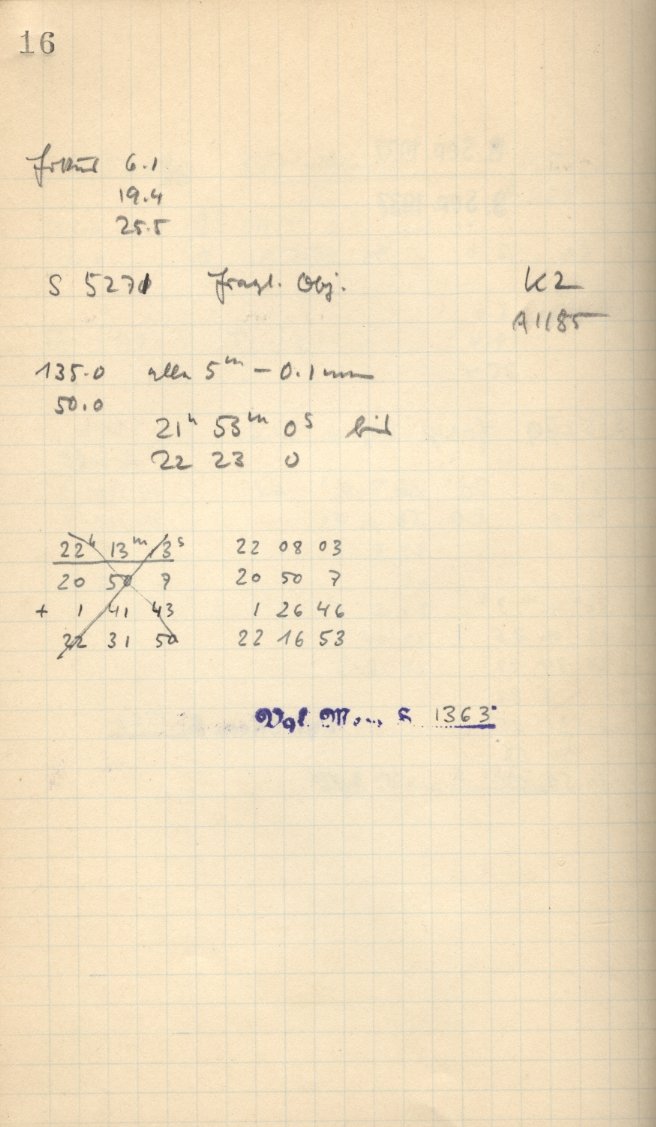 16
Fokus 6.1
19.4
25.5
S 5271 fragl. Obj. K2
A1185
135.0 alle 5ᵐ – 0.1 mm
50.0
21ʰ 53ᵐ 0ˢ bis
22 23 0
22ʰ 13ᵐ 3ˢ 22 08 03
20 50 7 20 50 7
+ 1 41 43 1 26 46
22 31 50 22 16 53
S 1363